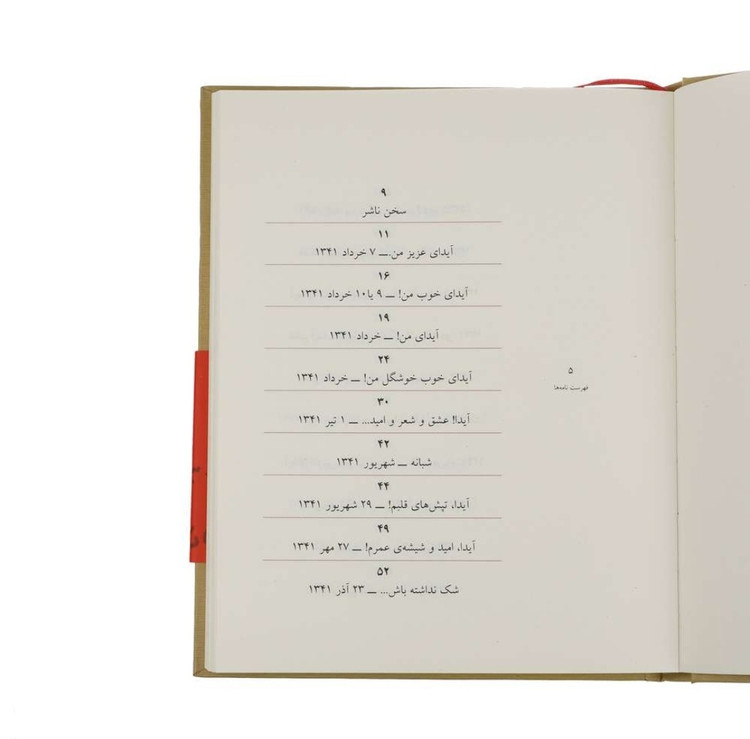 ۹
سخن ناشر
۱۱
آیدای عزیز من ــ ۷ خرداد ۱۳۴۱
۱۶
آیدای خوب من! ــ ۹ یا ۱۰ خرداد ۱۳۴۱
۱۹
آیدای من! ــ خرداد ۱۳۴۱
۲۴
آیدای خوب خوشگل من! ــ خرداد ۱۳۴۱
۳۰
آیدا! عشق و شعر و امید... ــ ۱ تیر ۱۳۴۱
۴۲
شبانه ــ شهریور ۱۳۴۱
۴۴
آیدا، تپش‌های قلبم! ــ ۲۹ شهریور ۱۳۴۱
۴۹
آیدا، امید و شیشه‌ی عمرم! ــ ۲۷ مهر ۱۳۴۱
۵۲
شک نداشته باش... ــ ۲۳ آذر ۱۳۴۱
۵
فهرست نامه‌ها